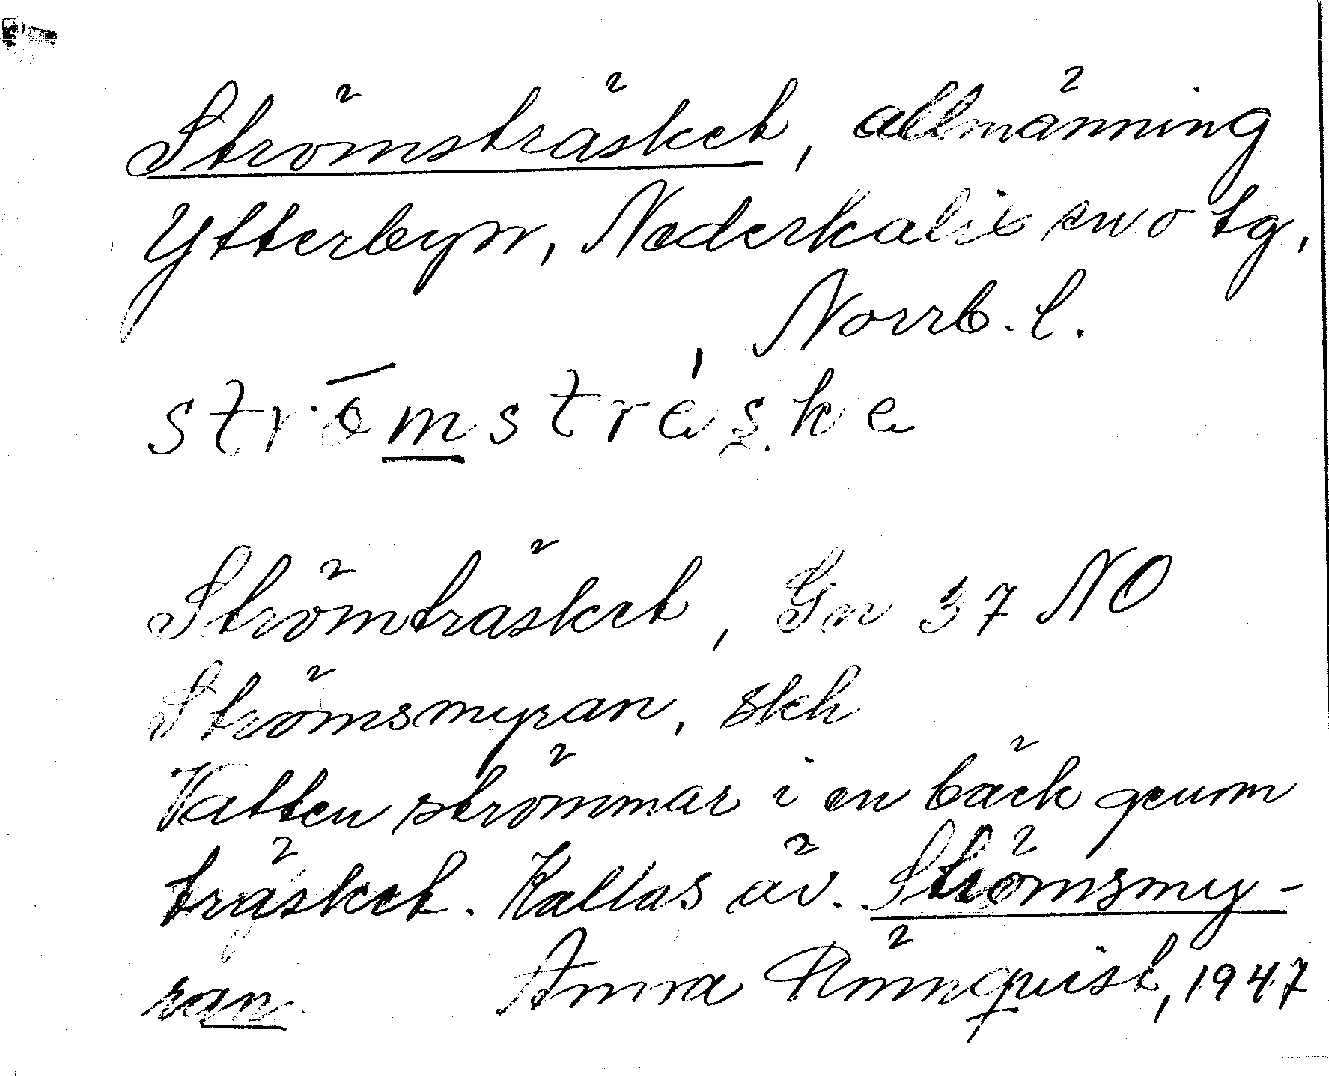 Strömsträsket, allmänning
Ytterbyn, Nederkalix sn o tg,
Norrb. l.
strömstrèske
Strömträsket, Gn 37 NO
Strömsmyran, skh
Vatten strömmar i en bäck genom
träsket. Kallas äv. Strömsmy-
ran
Anna Rönnquist, 1947